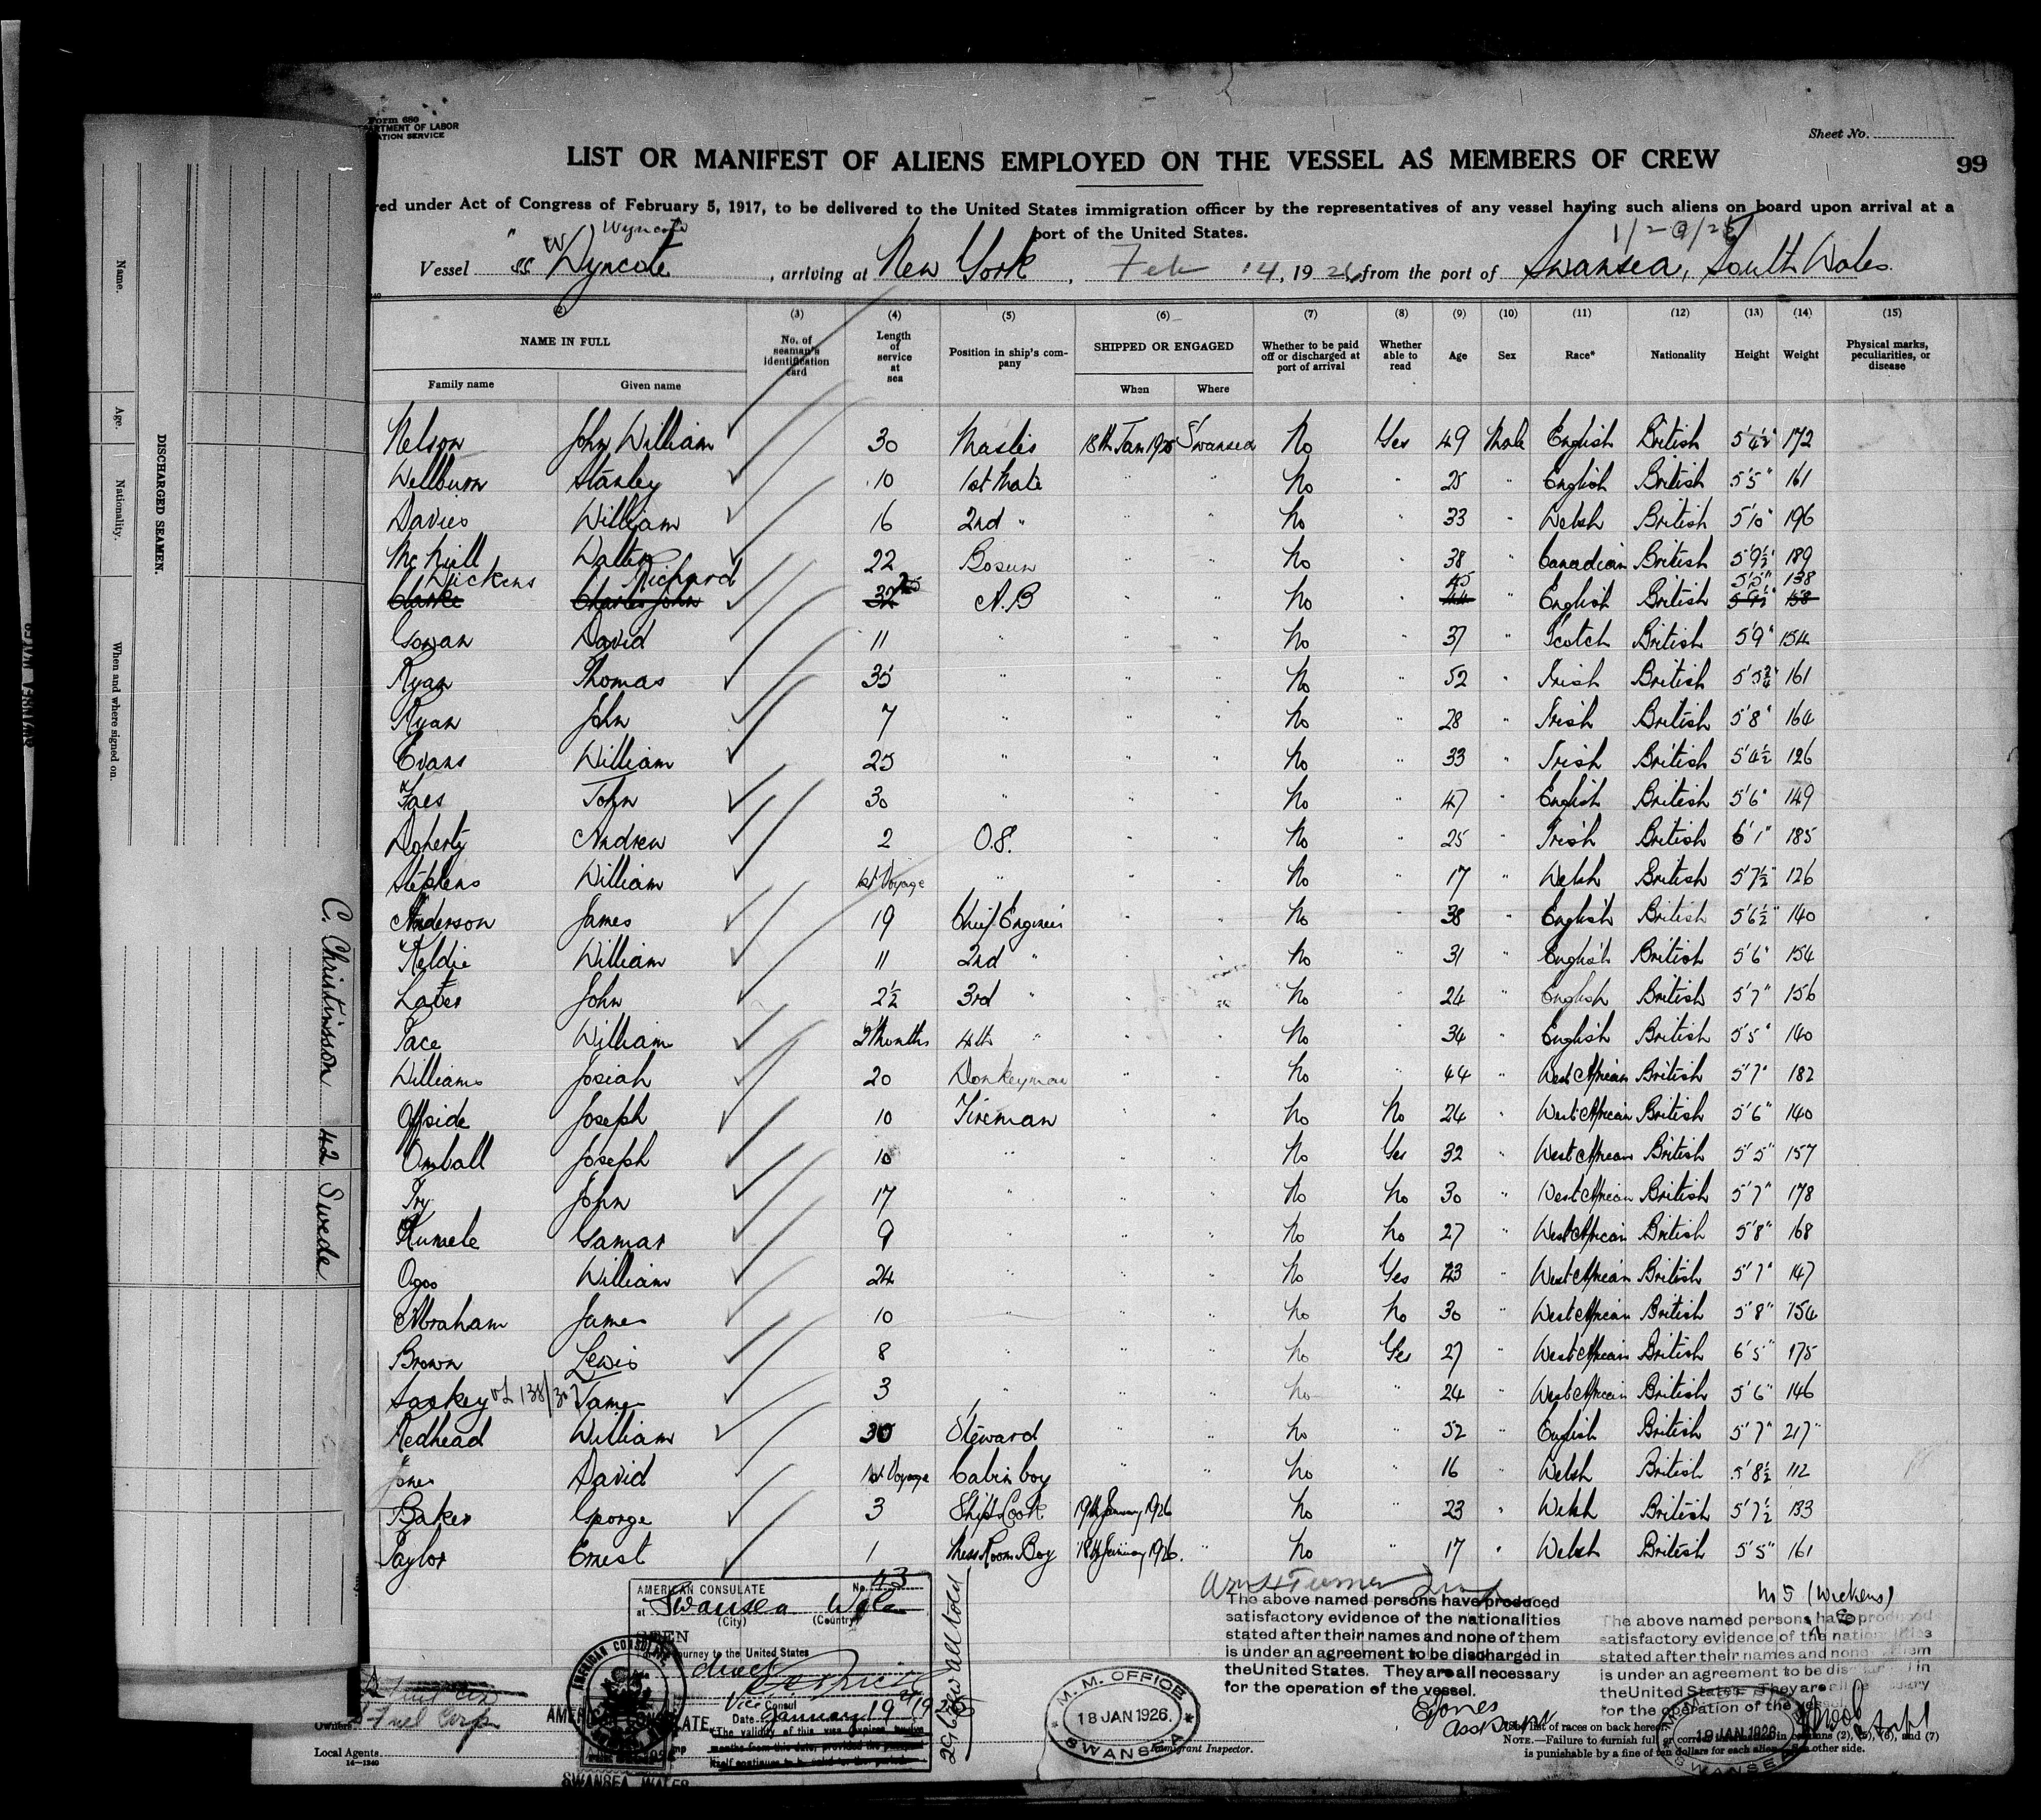 Form 680
ARTMENT OF LABOR
ATION SERVICE
Sheet No.
LIST OR MANIFEST OF ALIENS EMPLOYED ON THE VESSEL AS MEMBERS OF CREW
99
red under Act of Congress of February 5, 1917, to be delivered to the United States immigration officer by the representatives of any vessel having such aliens on board upon arrival at a
port of the United States.
Wyncote
Vessel SS Wyncote, arriving at New York, Feb 14, 1926 from the port of Swansea, South Wales.
(3) (4) (5) (6) (7) (8) (9) (10) (11) (12) (13) (14) (15)
NAME IN FULL No. of seaman's identification card Length of service at sea Position in ship's company SHIPPED OR ENGAGED Whether to be paid off or discharged at port of arrival Whether able to read Age Sex Race* Nationality Height Weight Physical marks, peculiarities, or disease
Family name Given name When Where
Nelson John William 30 Master 18th Jan 1926 Swansea No Yes 49 Male English British 5'4½" 172
Wellburn Stanley 10 1st Mate " " No " 25 " English British 5'5" 161
Davies William 16 2nd " " " No " 33 " Welsh British 5'10" 196
McNeill Walter 22 Bosun " " No " 38 " Canadian British 5'9½" 189
Dickens Richard 25 45 5'5" 138
Clarke Charles John 32 A.B " " No " 44 " English British 5'9½" 158
Gowan David 11 " " " No " 37 " Scotch British 5'9" 154
Ryan Thomas 35 " " " No " 52 " Irish British 5'5¾" 161
Ryan John 7 " " " No " 28 " Irish British 5'8" 164
Evans William 25 " " " No " 33 " Irish British 5'4½ 126
Faes John 30 " " " No " 47 " English British 5'6" 149
Doherty Andrew 2 O.S. " " No " 25 " Irish British 6'1" 185
Stephens William 1st Voyage " " " No " 17 " Welsh British 5'7½" 126
Anderson James 19 Chief Engineer " " No " 38 " English British 5'6½" 140
Keldie William 11 2nd " " " No " 31 " English British 5'6" 154
John 2½ 3rd " " " No " 24 " English British 5'7" 156
Pace William 2 Months 4th " " " No " 34 " English British 5'5" 140
Williams Josiah 20 Donkeyman " " No " 44 " West African British 5'7" 182
Offside Joseph 10 Fireman " " No No 24 " West African British 5'6" 140
Omball Joseph 10 " " " No Yes 32 " West African British 5'5" 157
Try John 17 " " " No No 30 " West African British 5'7" 178
Kumele Gamar 9 " " " No No 27 " West African British 5'8" 168
Ogoo William 24 " " " No Yes 43 " West African British 5'7" 147
Abraham James 10 " " " No No 30 " West African British 5'8" 154
Brown Lewis 8 " " " No Yes 27 " West African British 6'5" 175
Sackey James 3 " " " No " 24 " West African British 5'6" 146
Redhead William 30 Steward " " No " 52 " English British 5'7" 217
Jones David 1st Voyage Cabin boy " " No " 16 " Welsh British 5'8½ 112
Baker George 3 Ships Cook 19th January 1926 " No " 23 " Welsh British 5'7½ 133
Taylor Ernest 1 Mess Room Boy 18th January 1926. " No " 17 " Welsh British 5'5" 161
DISCHARGED SEAMEN.
Name.
Age.
Nationality.
When and where signed on.
C. Christinsson 42 Swede
AMERICAN CONSULATE No. 43
at Swansea Wales
(City) (Country)
SEEN
journey to the United States
direct
Vice Consul
Date January 19
The validity of this visa expires twelve
months from this date, provided the passport
itself continues to be valid for that period.
AMERICAN CONSULATE
SWANSEA, WALES
29 Crew all told
M. M. OFFICE
18 JAN 1926.
SWANSEA
Immigrant Inspector.
Wm H Turner
The above named persons have produced
satisfactory evidence of the nationalities
stated after their names and none of them
is under an agreement to be discharged in
the United States. They are all necessary
for the operation of the vessel.
EJones
Ass Supt
The above named persons have produced
satisfactory evidence of the nationalities
stated after their names and none them
is under an agreement to be dis in
the United States. They are all
for the operation of the vessel.
19 JAN 1926
SWANSEA
*See list of races on back hereof.
NOTE.—Failure to furnish full or correct information in columns (2), (5), (6), and (7)
is punishable by a fine of ten dollars for each alien. See other side.
Fuel Corp
Owners
Local Agents.
14—1240